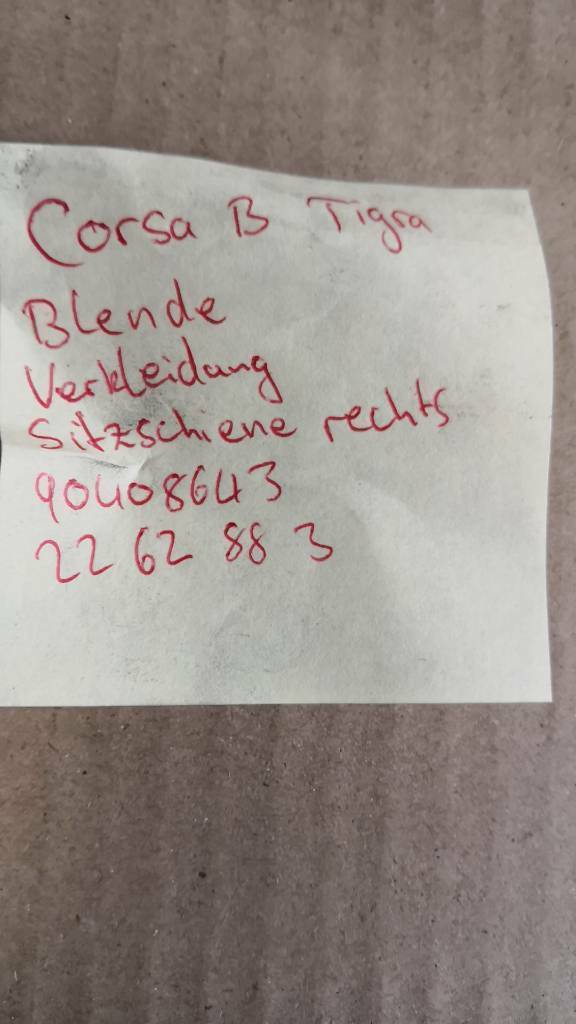 Corsa B Tigra
Blende
Verkleidung
Sitzschiene rechts
90408643
22 62 88 3